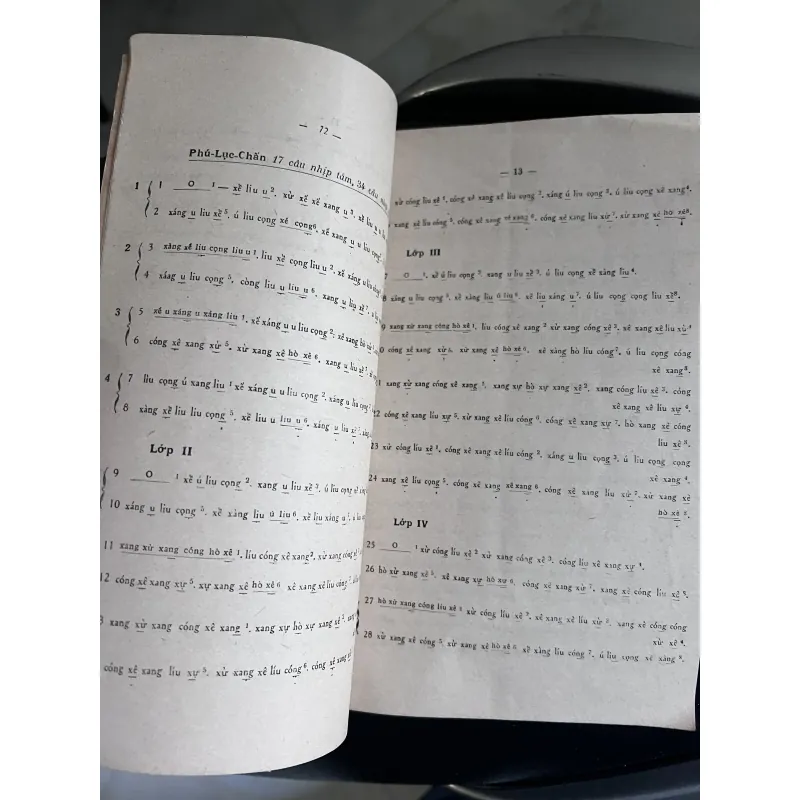 — 12 —
Phú-Lục-Chấn 17 câu nhịp tám, 34 câu
1 1 O 1 — xề liu u 2. xừ xế xế xang u 3. xề liu u
2 xáng u liu xề 5. ú liu cọng xê cọng 6. xế xang u u liu cọng
2 3 xàng xê liu cọng liu u 1. liu xề cọng liu u 2. xế xáng u liu
4 xáng u liu cọng 5. còng liu u liu u 6. xang u liu xề 7.
3 5 xê u xáng u xáng liu 1. xế xáng u u liu cọng 2. xê xang hò xừ
6 cóng xê xang xừ 5. xừ xang xê hò xê 6. xế xang u u liu
4 7 liu cọng ú xang liu 1 xế xáng u u liu cọng 2. xáng u liu cọng
8 xàng xề liu liu cọng 5. xề liu u liu u 6. xáng u liu xề 7.
Lớp II
9 O 1 xề ú liu cọng 2. xang u liu xề 3. ú liu cọng xê
10 xáng u liu cọng 5. xề xàng liu ú liu 6. xề liu xàng u 7. ú liu
11 xang xừ xang cóng hò xê 1. liu cóng xê xang 2. xừ xang cóng xê
12 cóng xê xang xự 5. xự xang xê hò xê 6 xê xang xê liu cóng 7.
3 xang xừ xang cóng xê xang 1. xang xự hò xự xang xê 2. xang
cóng xê xang liu xự 5. xừ xang xê liu cóng 6. cóng xê xang xê
— 13 —
xừ cóng liu xê 1. cóng xê xang xê liu cọng 2. xáng ú liu cọng 3. ú liu cọng xê xang 4.
xang xê liu cóng 5. cóng xê xang xê xang 6. cóng xê xang liu xừ 7. xừ xang xê hò xê 8.
Lớp III
7 O 1. xề ú liu cọng 2. xang u liu xề 3. ú liu cọng xề xàng liu 4.
8 xáng u liu cọng 5. xề xàng liu ú liu 6. xề liu xàng u 7. ú liu cọng cọng liu xề 8.
9 xang xừ xang cóng hò xê 1. liu cóng xê xang 2 xừ xang cóng xê 3. xê xang xê liu xừ 4
0 cóng xê xang xừ 5. xừ xang xê hò xê 6. xê xàng hò liu cóng 7. ú liu cọng cóng
xê xang 8.
1 xang xừ xang cóng xê xang 1. xang xự hò xự xang xê 2. xang cóng liu xê 3. cóng
xê xang xê liu xự 4.
22 cóng xê xang liu xự 5. xừ xang xê liu cóng 6. cóng xê xang xự 7. hò xang xê cóng
liu xê 8.
23 xừ cóng liu xê 1. cóng xê xang xê liu cóng 2. xáng u liu cọng 3. ú liu cọng cọng
xê xang 4.
24 xang xê liu cọng 5. cóng xê xang xê xang 6. cóng xê xàng liu xừ 7. xừ xang xê
hò xê 8.
Lớp IV
25 O 1 xừ cóng liu xê 2 xừ xang cóng xê 3. cóng liu xê xang xự 4.
26 hò xừ xang xê 5. xê xang xự hò xự 6. cóng xê xang xừ 7. xang xê cóng liu xê 8.
27 hò xừ xang cóng liu xê 1 xừ cóng liu xê 2. xê xang xê liu xừ 3. xang xê cóng cóng
xừ xê 4.
28 xừ xang xê cóng 5. xừ xang xê hò xê 6 xề xàng liu cóng 7. ú liu cọng xê xàng 8.